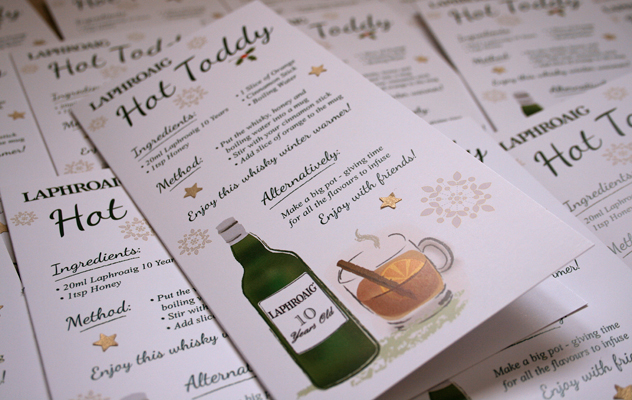 LAPHROAIG
Hot Toddy
Ingredients:
• 20ml Laphroaig 10 Years
• 1tsp Honey
• 1 Slice of Orange
• Cinnamon Stick
• Boiling Water
Method:
• Put the whisky, honey and
boiling water into a mug
• Stir with your cinnamon stick
• Add slice of orange to the mug
Enjoy this whisky winter warmer!
Alternatively:
Make a big pot - giving time
for all the flavours to infuse
Enjoy with friends!
LAPHROAIG
10
Years Old
LAPHROAIG
Hot
Ingredients:
• 20ml Laphroaig 10 Year
• 1tsp Honey
Method:
• Put the
boiling
• Stir with
• Add slic
Enjoy this whisky
LAPHROAIG
Hot Toddy
LAPHROAIG
Hot
Ingredients:
• 20ml Laphroaig
• 1tsp Honey
Method:
Enjoy this
Make a big pot - giving time
for all the flavours to infuse
Enjoy with friends!